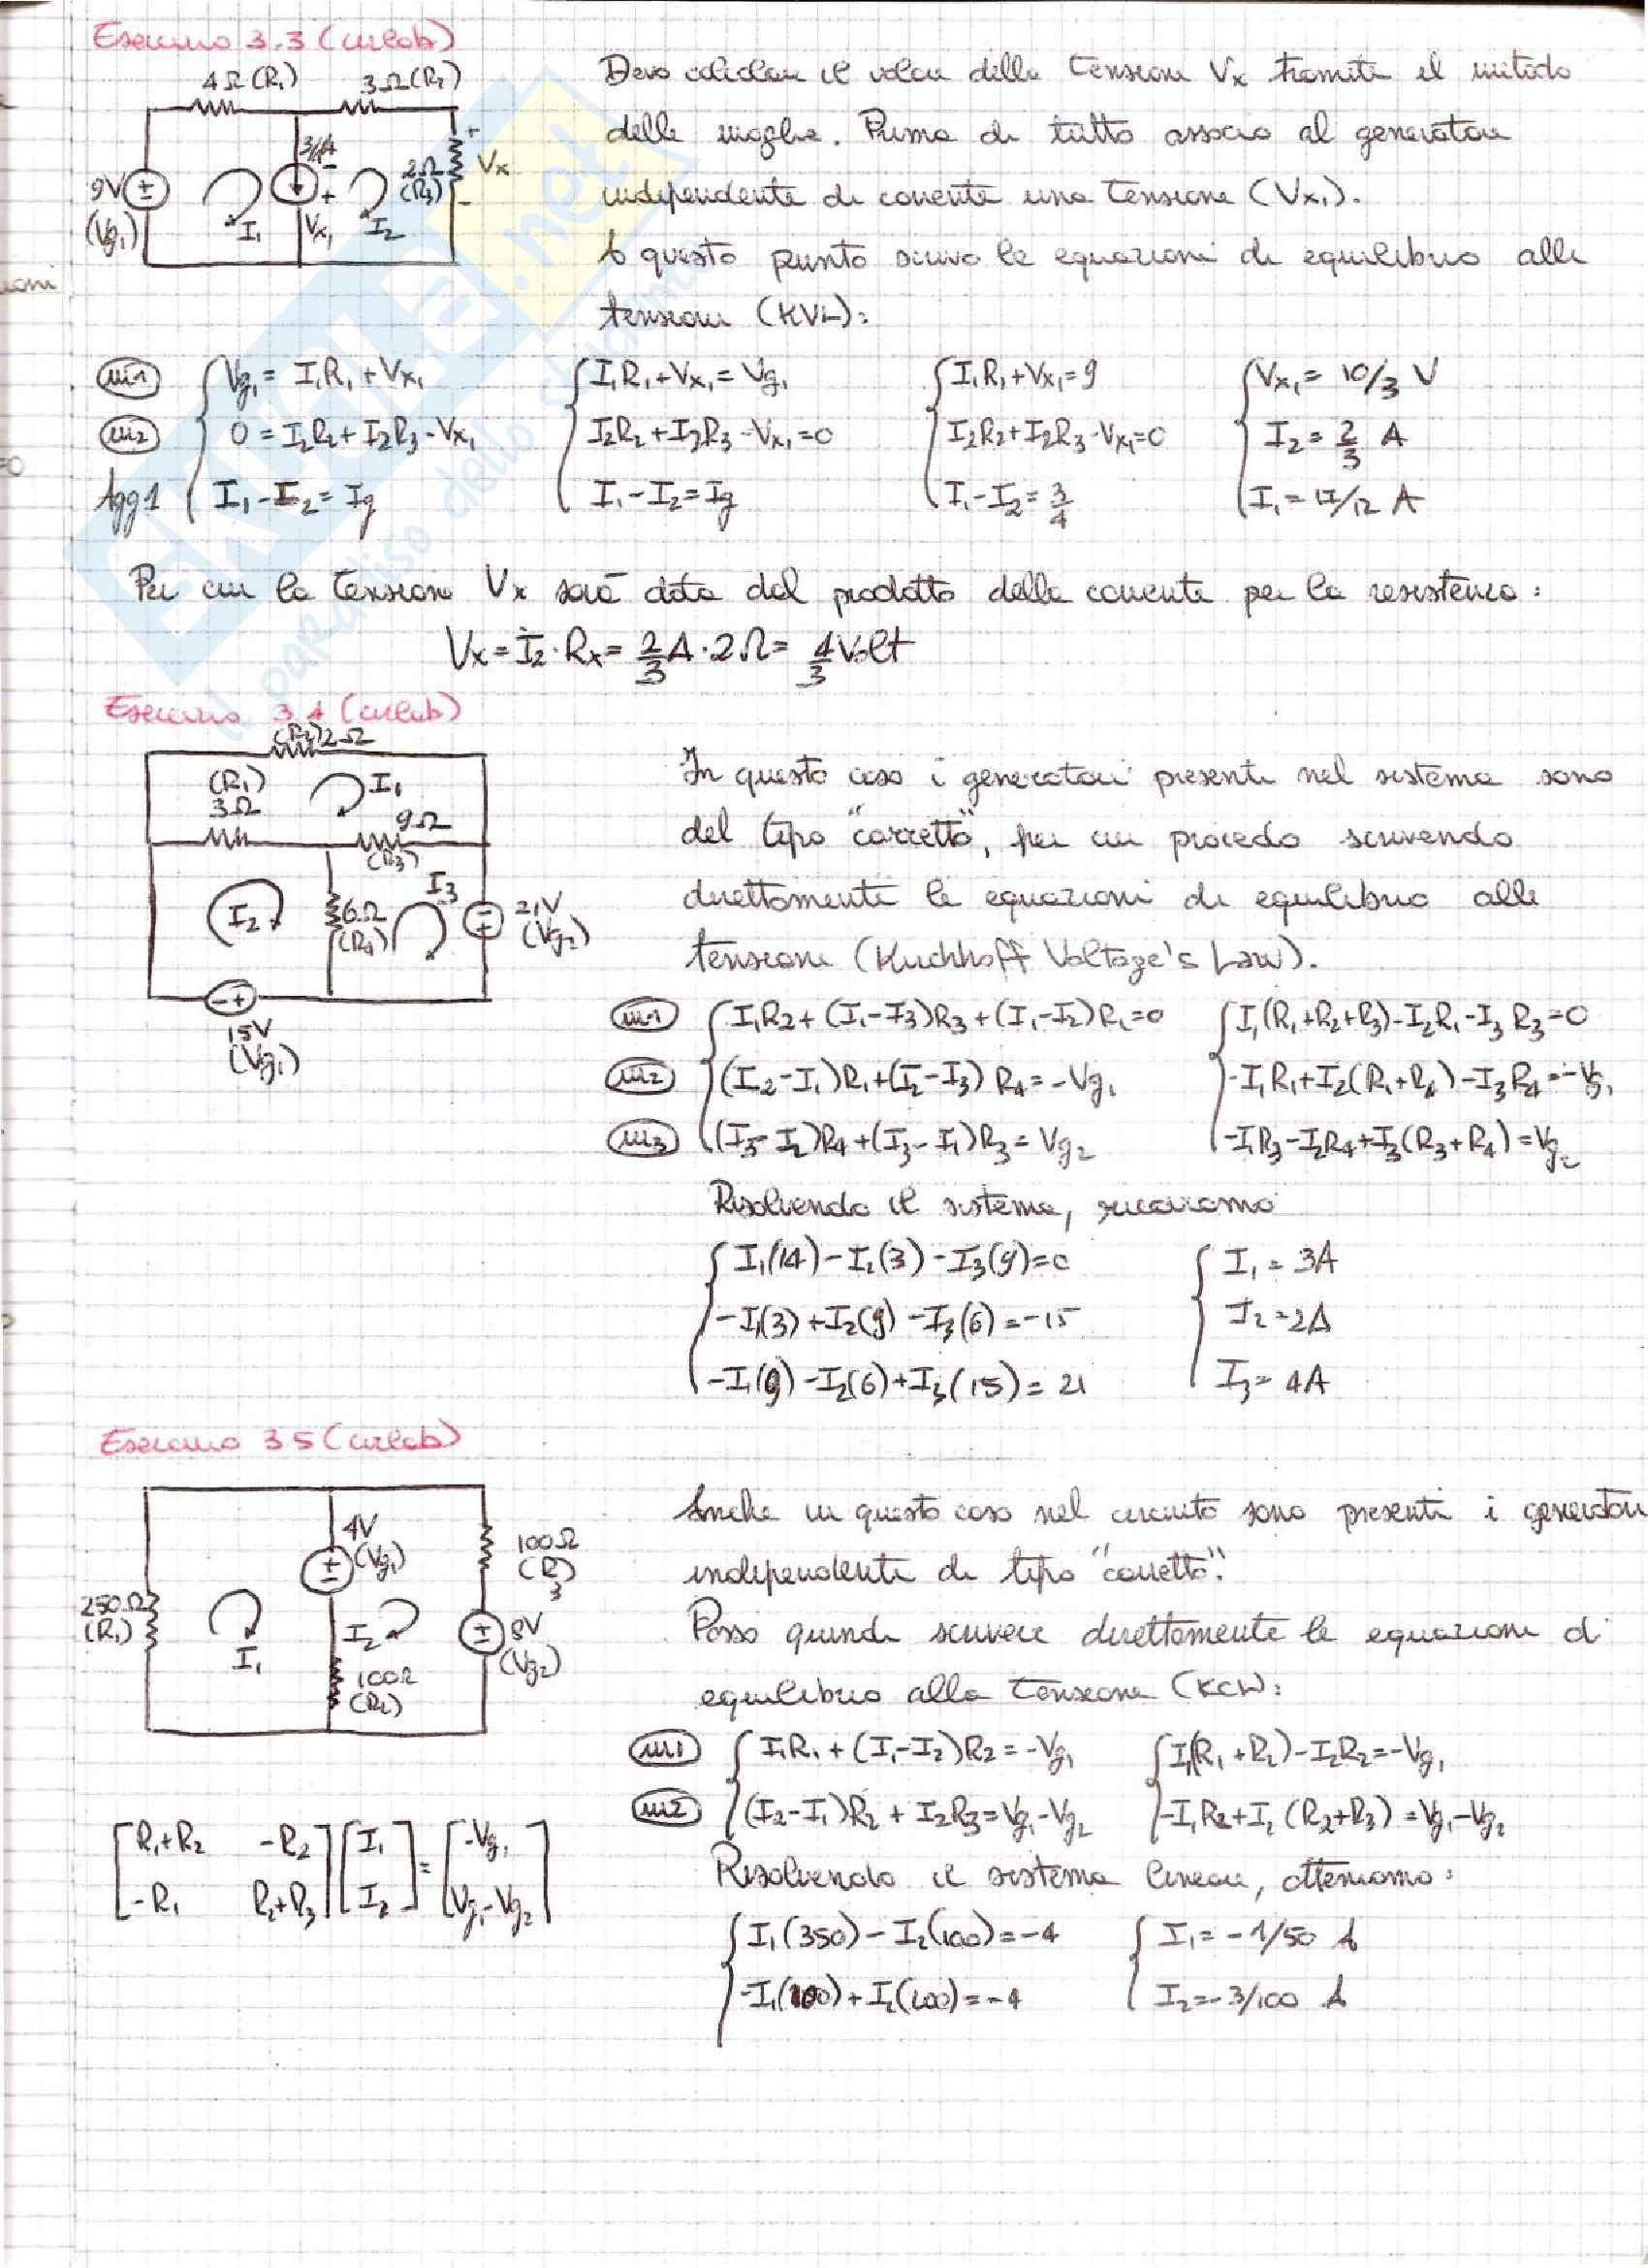 Esercizio 3.3 (circlab)
4Ω (R₁) 3Ω (R₂)
9V (Vg₁) I₁ 3/4A - + Vx₁ I₂ 2Ω (R₃) + Vx -
Devo calcolare il valore della tensione Vx tramite il metodo
delle maglie. Prima di tutto associo al generatore
indipendente di corrente una tensione (Vx₁).
A questo punto scrivo le equazioni di equilibrio alle
tensioni (KVL):
m1 Vg₁ = I₁R₁ + Vx₁ I₁R₁ + Vx₁ = Vg₁ I₁R₁ + Vx₁ = 9 Vx₁ = 10/3 V
m2 0 = I₂R₂ + I₂R₃ - Vx₁ I₂R₂ + I₂R₃ - Vx₁ = 0 I₂R₂ + I₂R₃ - Vx₁ = 0 I₂ = 2/3 A
Agg1 I₁ - I₂ = Ig I₁ - I₂ = Ig I₁ - I₂ = 3/4 I₁ = 17/12 A
Per cui la tensione Vx sarà data dal prodotto della corrente per la resistenza:
Vx = I₂ · Rx = 2/3 A · 2Ω = 4/3 Volt
Esercizio 3.4 (circlab)
(R₂) 2Ω
(R₁) 3Ω I₁ 9Ω (R₃)
I₂ 6Ω (R₄) I₃ 21V (Vg₂)
15V (Vg₁)
In questo caso i generatori presenti nel sistema sono
del tipo "corretto", per cui procedo scrivendo
direttamente le equazioni di equilibrio alle
tensioni (Kirchhoff Voltage's Law).
m1 I₁R₂ + (I₁-I₃)R₃ + (I₁-I₂)R₁ = 0 I₁(R₁+R₂+R₃) - I₂R₁ - I₃R₃ = 0
m2 (I₂-I₁)R₁ + (I₂-I₃)R₄ = -Vg₁ -I₁R₁ + I₂(R₁+R₄) - I₃R₄ = -Vg₁
m3 (I₃-I₂)R₄ + (I₃-I₁)R₃ = Vg₂ -I₁R₃ - I₂R₄ + I₃(R₃+R₄) = Vg₂
Risolvendo il sistema, ricaviamo
I₁(14) - I₂(3) - I₃(9) = 0 I₁ = 3A
-I₁(3) + I₂(9) - I₃(6) = -15 I₂ = 2A
-I₁(9) - I₂(6) + I₃(15) = 21 I₃ = 4A
Esercizio 3.5 (circlab)
4V (Vg₁) 100Ω (R₃)
250Ω (R₁) I₁ I₂ 100Ω (R₂) 8V (Vg₂)
Anche in questo caso nel circuito sono presenti i generatori
indipendenti di tipo "corretto".
Posso quindi scrivere direttamente le equazioni di
equilibrio alla tensione (KCW):
m1 I₁R₁ + (I₁-I₂)R₂ = -Vg₁ I₁(R₁+R₂) - I₂R₂ = -Vg₁
m2 (I₂-I₁)R₂ + I₂R₃ = Vg₁-Vg₂ -I₁R₂ + I₂(R₂+R₃) = Vg₁-Vg₂
R₁+R₂ -R₂ I₁ = -Vg₁
-R₁ R₂+R₃ I₂ Vg₁-Vg₂
Risolvendo il sistema lineare, otteniamo:
I₁(350) - I₂(100) = -4 I₁ = -1/50 A
-I₁(100) + I₂(100) = -4 I₂ = -3/100 A